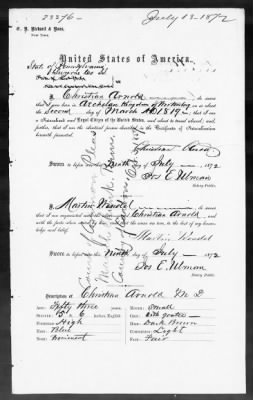 23276-
July 13-1872
C. B. Richard & Boas.
New York.
United States of America.
State of Pennsylvania
I, Christian Arnold do swear
that I was born in Kingdom of on or about the
Second day of March AD 1819; that I
am a Naturalized and Legal Citizen of the United States, and about to travel abroad, and
further, that I am the identical person described in the Certificate of Naturalization
herewith presented.
Christian Arnold
Sworn to before me this Ninth day of July - 1872
Jos E. Ulman
Notary Public.
I, Martin Wendel do swear
that I am acquainted with the above named Christian Arnold and
with the facts above stated by him, and that the same are true, to the best of my know-
ledge and belief.
Martin Wendel
Sworn to before me this Ninth day of July - 1872
Jos E. Ulman
Notary Public.
Common Pleas
County
Description of Christian Arnold M D
Age: Fifty three
Mouth: Small
Stature: 5 ft 6 inches, English.
Chin:
Forehead: High
Hair: Dark Brown
Eyes: Blue
Complexion: Light
Nose: Prominent
Face: Fair